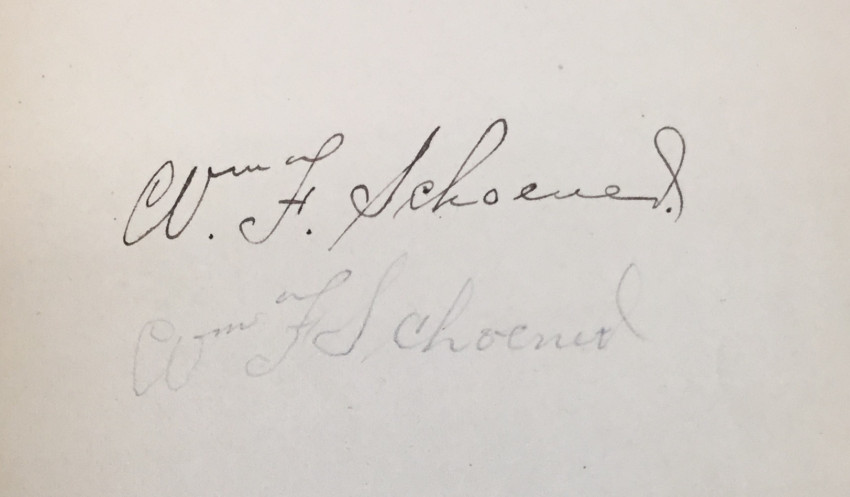 Wm. F. Schoened.
Wm F Schoened